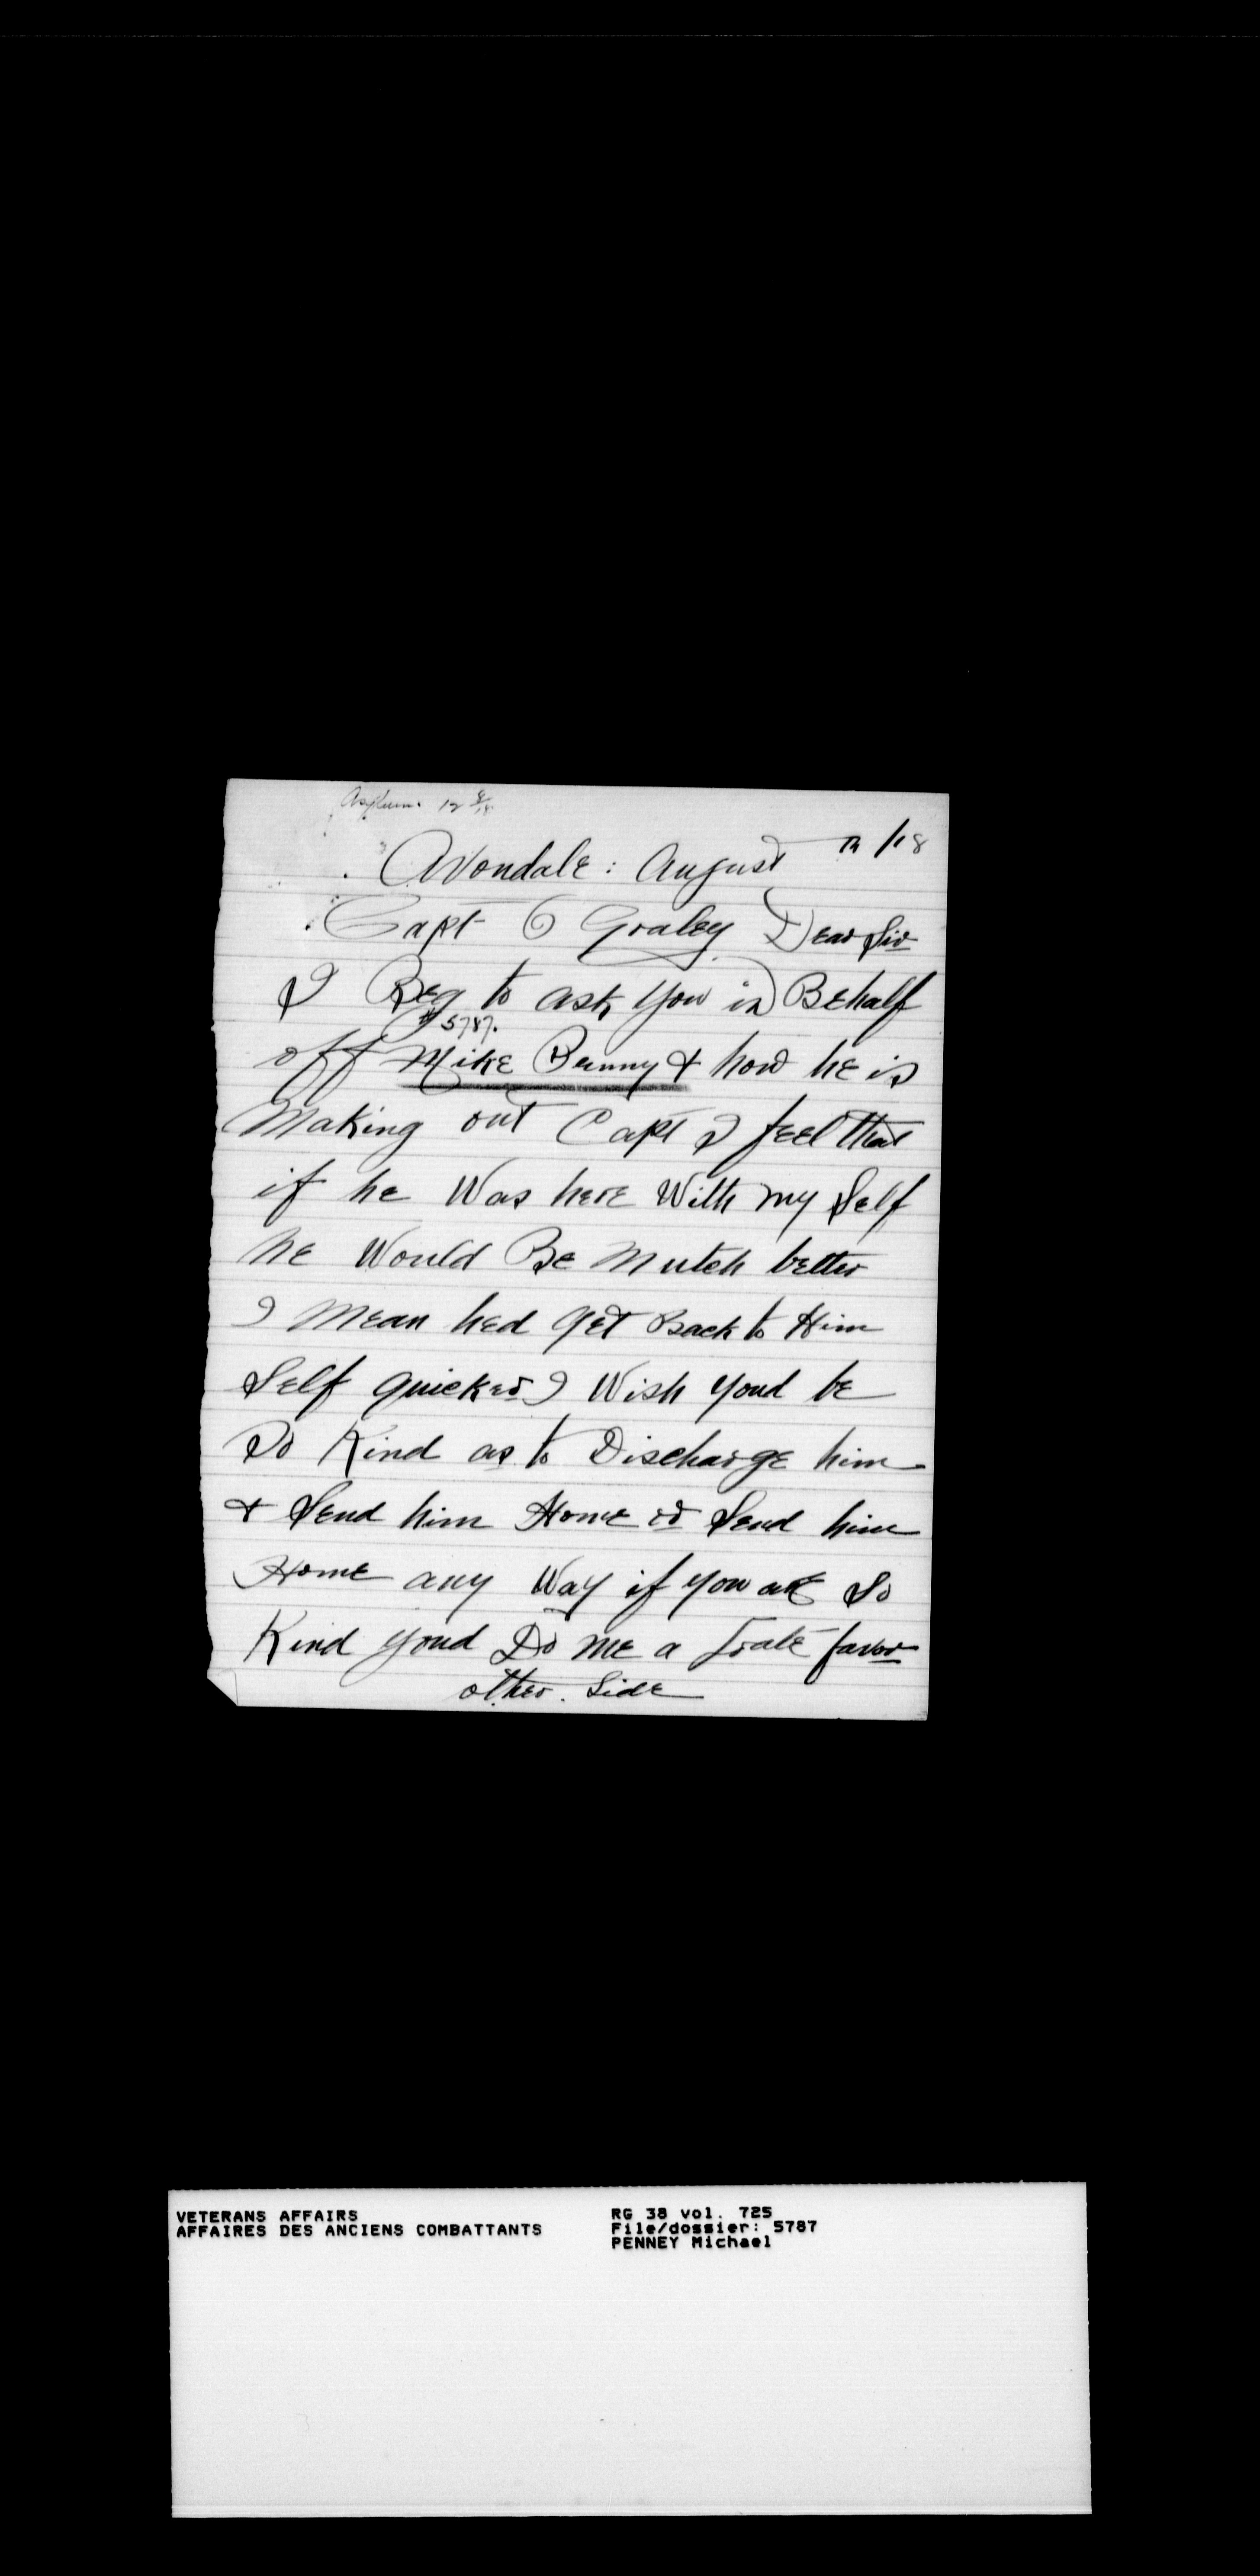 Asylum. 12 8/18
Avondale : August /18
Capt O Graley Dear Sir
I Beg to ask you in Behalf
#5787.
off Mike Penny & how he is
Making out Capt I feel that
if he Was here With my Self
he Would Be Mutch better
I Mean hed get Back to Him
Self quicker I Wish youd be
So Kind as to Discharge him
& Send him Home or Send him
Home any Way if you are So
Kind youd Do Me a Grate favor
other. Side
VETERANS AFFAIRS
AFFAIRES DES ANCIENS COMBATTANTS
RG 38 vol. 725
File/dossier: 5787
PENNEY Michael